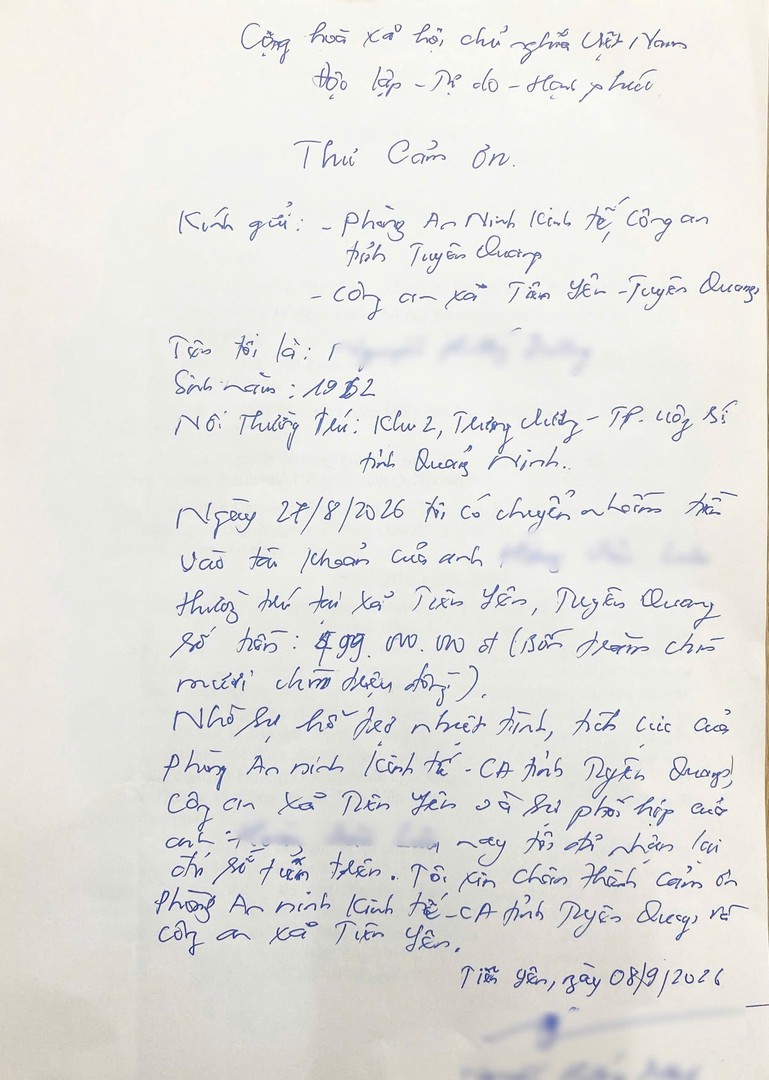 Cộng hoà xã hội chủ nghĩa Việt Nam
Độc lập - Tự do - Hạnh phúc
Thư Cảm ơn.
Kính gửi: - Phòng An Ninh Kinh tế, Công an
tỉnh Tuyên Quang
- Công an xã Tiên Yên - Tuyên Quang
Tên tôi là:
Sinh năm: 1962
Nơi thường trú: Khu 2, - TP. Uông Bí
tỉnh Quảng Ninh.
Ngày 27/8/2026 tôi có chuyển nhầm tiền
vào tài khoản của anh
thường trú tại xã Tiên Yên, Tuyên Quang
số tiền: 499.000.000 đ (Bốn trăm chín
mươi chín triệu đồng).
Nhờ sự hỗ trợ nhiệt tình, tích cực của
phòng An ninh Kinh tế - CA tỉnh Tuyên Quang,
Công an xã Tiên Yên và sự phối hợp của
anh nay tôi đã nhận lại
đủ số tiền trên. Tôi xin chân thành cảm ơn
phòng An ninh Kinh tế - CA tỉnh Tuyên Quang và
Công an xã Tiên Yên.
Tiên Yên, ngày 08/9/2026